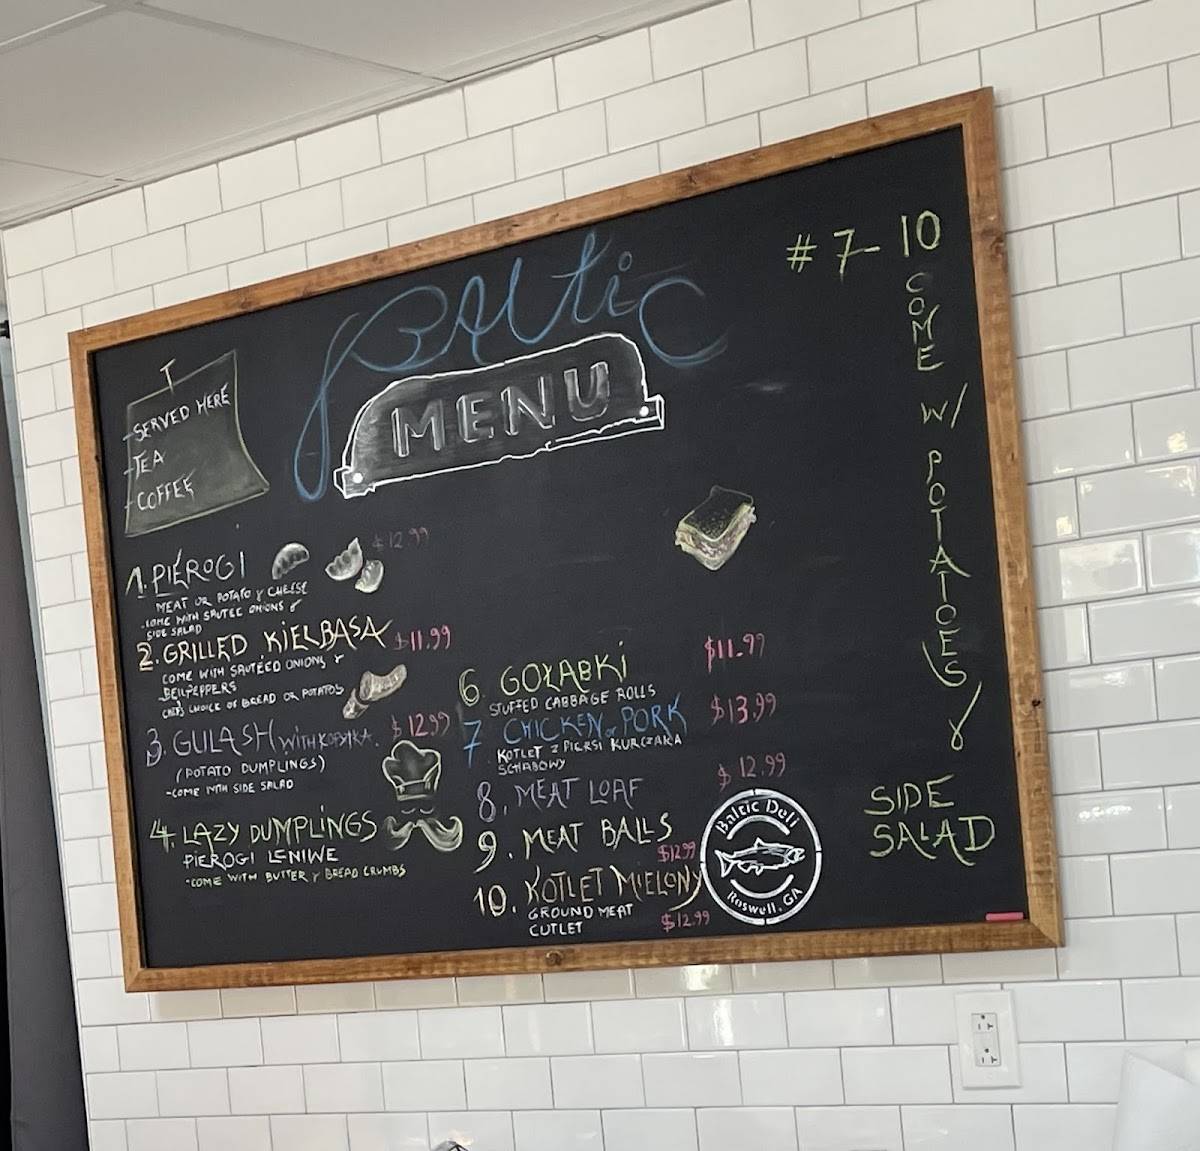 Baltic
MENU
- SERVED HERE
- TEA
- COFFEE
1. PIEROGI $12.99
MEAT OR POTATO & CHEESE
- COME WITH SAUTEE ONIONS &
SIDE SALAD
2. GRILLED KIELBASA $11.99
COME WITH SAUTÉED ONIONS &
BELLPEPPERS
CHEF'S CHOICE OF BREAD OR POTATOS
3. GULASH WITH KOPYTKA. $12.99
(POTATO DUMPLINGS)
- COME WITH SIDE SALAD
4. LAZY DUMPLINGS
PIEROGI LENIWE
- COME WITH BUTTER & BREAD CRUMBS
6. GOŁĄBKI $11.99
STUFFED CABBAGE ROLLS
7 CHICKEN or PORK $13.99
KOTLET Z PIERSI KURCZAKA
SCHABOWY
8. MEAT LOAF $12.99
9. MEAT BALLS $12.99
10. KOTLET MIELONY
GROUND MEAT
CUTLET $12.99
Baltic Deli
Roswell, GA
# 7-10
COME
W/
POTATOES
&
SIDE
SALAD